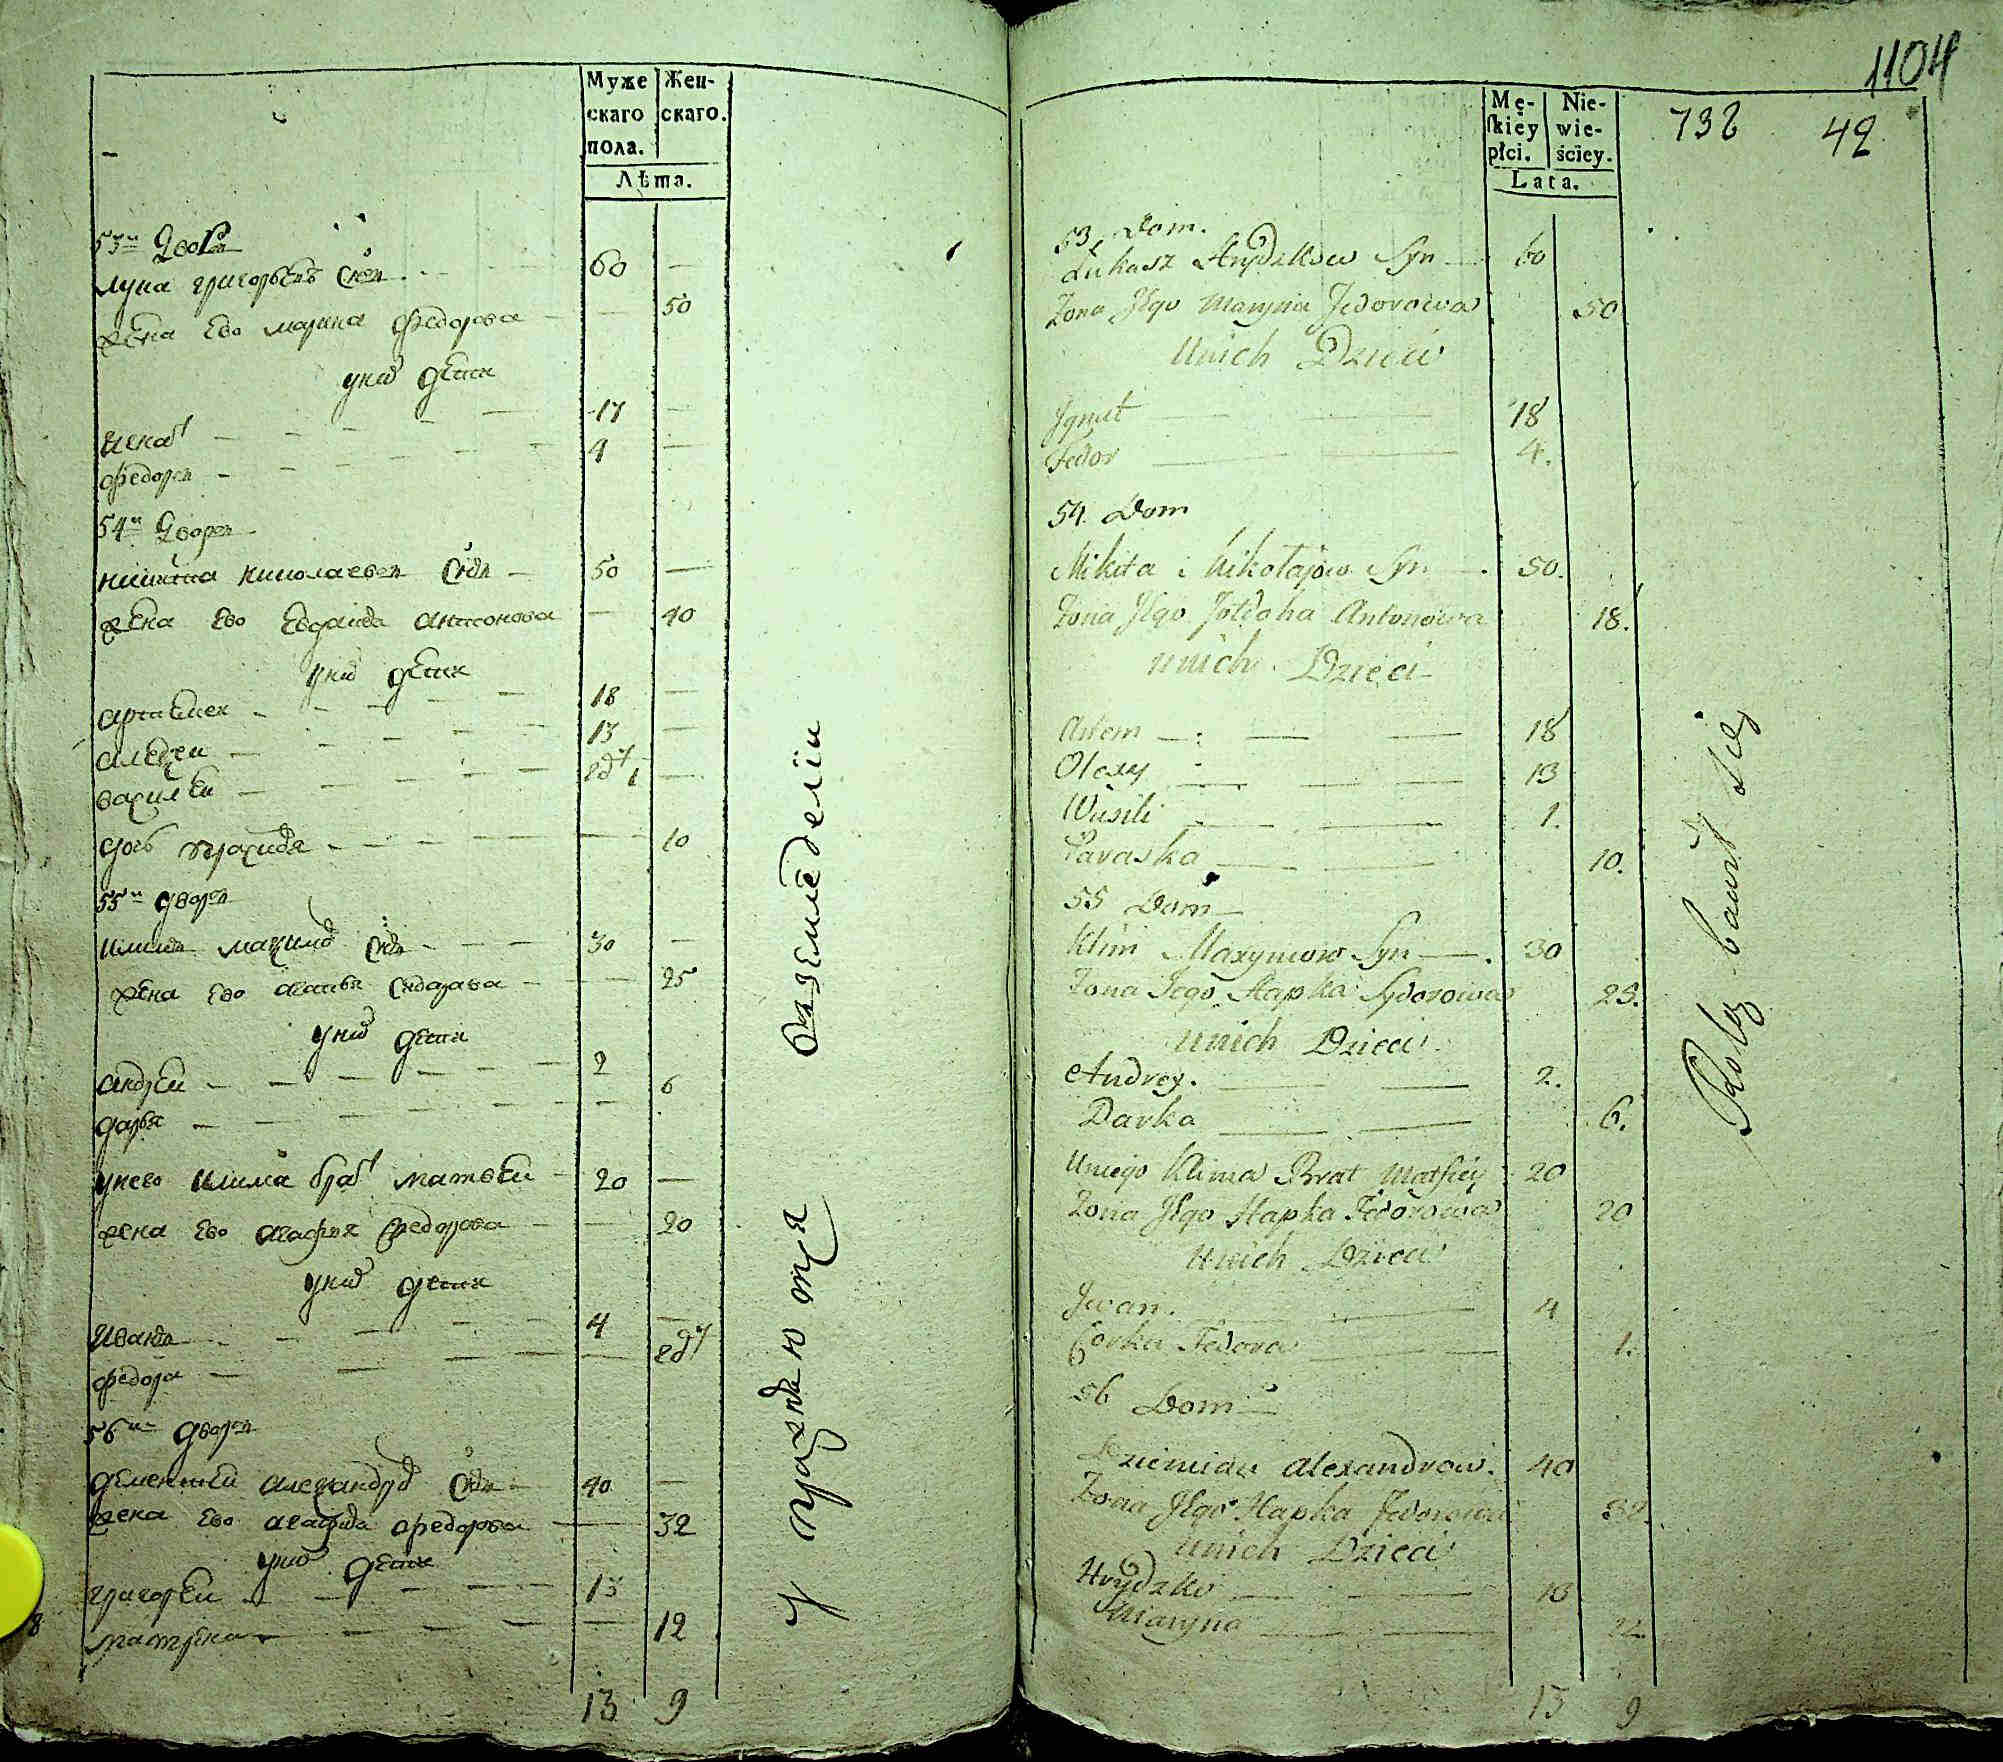 Муже Жен-
скаго скаго.
пола.
Лѣта.
53й Дворъ
Лука григорьевъ снъ 60 —
жена Ево марина федорова — 50
унихъ дети
игнатъ 17 —
федоръ 4 —
54й Дворъ
никита николаевъ снъ 50 —
жена Ево Антонова — 40
унихъ дети
артемеи 18 —
алексеи 13 —
василеи 1 —
дочь — 10
55й дворъ
климъ максимовъ снъ 30 —
жена Ево агафья сидорова — 25
унихъ дети
андреи 2
дарья — 6
унего клима братъ матвеи 20 —
жена Ево агафья федорова — 20
унихъ дети
Иванъ 4 —
федора —
56й дворъ
дементеи александровъ снъ 40 —
жена Ево агафья федорова — 32
унихъ дети
григореи 13
матрена — 12
13 9
упражняютца
вземледелiи
1104
Mę- Nie-
skiey wie-
płci. ściey.
Lata.
732 42
53, Dom.
Łukasz Hrydzkow Syn 60
Zona Jego Maryna Fedorowa 50
Unich Dzieci
Ignat 18
Fedor 4.
54 Dom
Mikita Mikołajow Syn 50.
Zona Jego Antonowa 18.
unich Dzieci
Artem 18
Olexy 13
Wasili 1.
Paraska 10.
55 Dom
Klim Maxymow Syn 30
Zona Jego Hapka Sydorowa 25.
unich Dzieci
Andrey. 2.
Darka 6.
Uniego Klima Brat Matfiey 20
Zona Jego Hapka Fedorowa 20
Unich Dzieci
Jwan. 4
Corka Fedora 1.
56 Dom
Dziemian Alexandrow. 40
Zona Jego Hapka Fedorowa 32.
unich Dzieci
Hrydzko 13
Maryna 12
13 9
Rolą bawią się